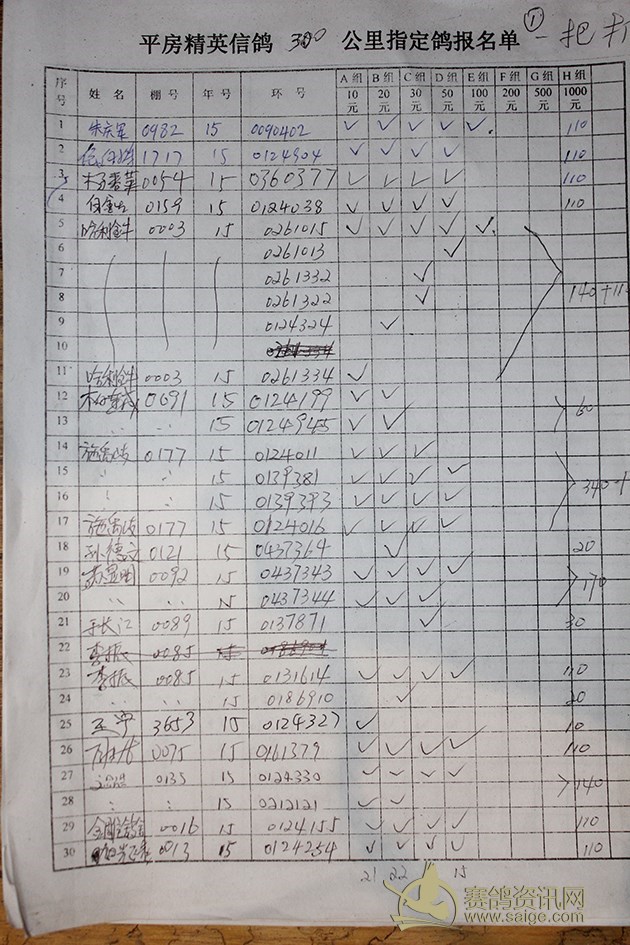 ①
平房精英信鸽 300 公里指定鸽报名单 一把
序号 姓名 棚号 年号 环号 A组 B组 C组 D组 E组 F组 G组 H组
10元 20元 30元 50元 100元 200元 500元 1000元
1 朱庆军 0982 15 0090402 ✓ ✓ ✓ ✓ ✓. 110
2 1717 15 0124904 ✓ ✓ ✓ ✓ 110
3 0054 15 0360377 ✓ ✓ ✓ ✓ 110
4 0159 15 0124038 ✓ ✓ ✓ ✓ 110
5 哈利金牛 0003 15 0261015 ✓ ✓ ✓ ✓ ✓.
6 0261013 ✓
7 0261332 ✓
8 0261322 ✓ 140+11
9 0124324 ✓
10
11 哈利金牛 0003 15 0261334 ✓
12 0691 15 0124199 ✓ ✓
13 15 0124945 ✓ ✓ 60
14 0177 15 0124011 ✓ ✓ ✓
15 15 0139381 ✓ ✓ ✓ ✓
16 15 0139393 ✓ ✓ ✓ ✓ 340+
17 0177 15 0124016 ✓ ✓ ✓ ✓
18 孙德文 0121 15 0437364 ✓ 20
19 0092 15 0437343 ✓ ✓ ✓ ✓
20 15 0437344 ✓ ✓ ✓ 170
21 于长江 0089 15 0137871 ✓ 30
22 李振 0085 15
23 李振 0085 15 0131614 ✓ ✓ ✓ ✓ 110
24 15 0186910 ✓ 20
25 王宁 3653 15 0124327 ✓ 10
26 0075 15 0161379 ✓ ✓ ✓ ✓ 110
27 0135 15 0124330 ✓ ✓ ✓ ✓
28 15 0212121 ✓ ✓ 140
29 0016 15 0124155 ✓ ✓ ✓ ✓ 110
30 0013 15 0124254 ✓ ✓ ✓ ✓ 110
21 22 15
赛鸽资讯网
www.saige.com